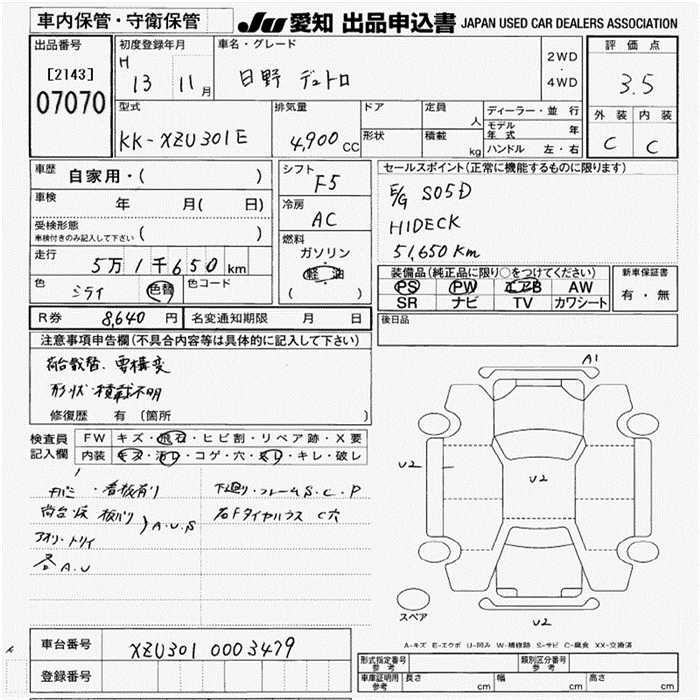 車内保管・守衛保管
JU 愛知 出品申込書 JAPAN USED CAR DEALERS ASSOCIATION
出品番号
[2143]
07070
初度登録年月
H
13 11月
車名・グレード
日野 デュトロ
2WD
・
4WD
評価点
3.5
型式
KK-XZU301E
排気量
4,900 cc
ドア
形状
定員
人
積載
kg
ディーラー・並行
モデル年式 年
ハンドル 左・右
外装 内装
C C
車歴
自家用・( )
車検
年 月( 日)
受検形態
車検付きのみ記入して下さい
( )
走行
5万1千650km
色
シライ
色替
色コード
シフト
F5
冷房
AC
燃料
ガソリン
軽油
( )
セールスポイント(正常に機能するものに限ります)
E/G S05D
HIDECK
51,650Km
装備品(純正品に限り○をつけてください)
PS PW エアB AW
SR ナビ TV カワシート
新車保証書
有・無
R券 8,640円
名変通知期限 月 日
後日品
注意事項申告欄(不具合内容等は具体的に記入して下さい)
荷台載替、要構変
形状・積載不明
修復歴 有 (箇所 )
検査員
記入欄
FW キズ・飛石・ヒビ割・リペア跡・X要
内装 キズ・汚レ・コゲ・穴・スレ・キレ・破レ
・看板有り
荷台 板バリ
アオリ・トリイ
A.U.S
各A.U
下廻り・フレームS.C.P
右Fタイヤハウス C穴
A1
U2
U2
U2
スペア
A-キズ E-エクボ U-凹み W-補修跡 S-サビ C-腐食 XX-交換済
車台番号
XZU301 0003479
登録番号
形式指定番号
参考
類別区分番号
参考
車庫証明用
参考
長さ cm
幅 cm
高さ cm